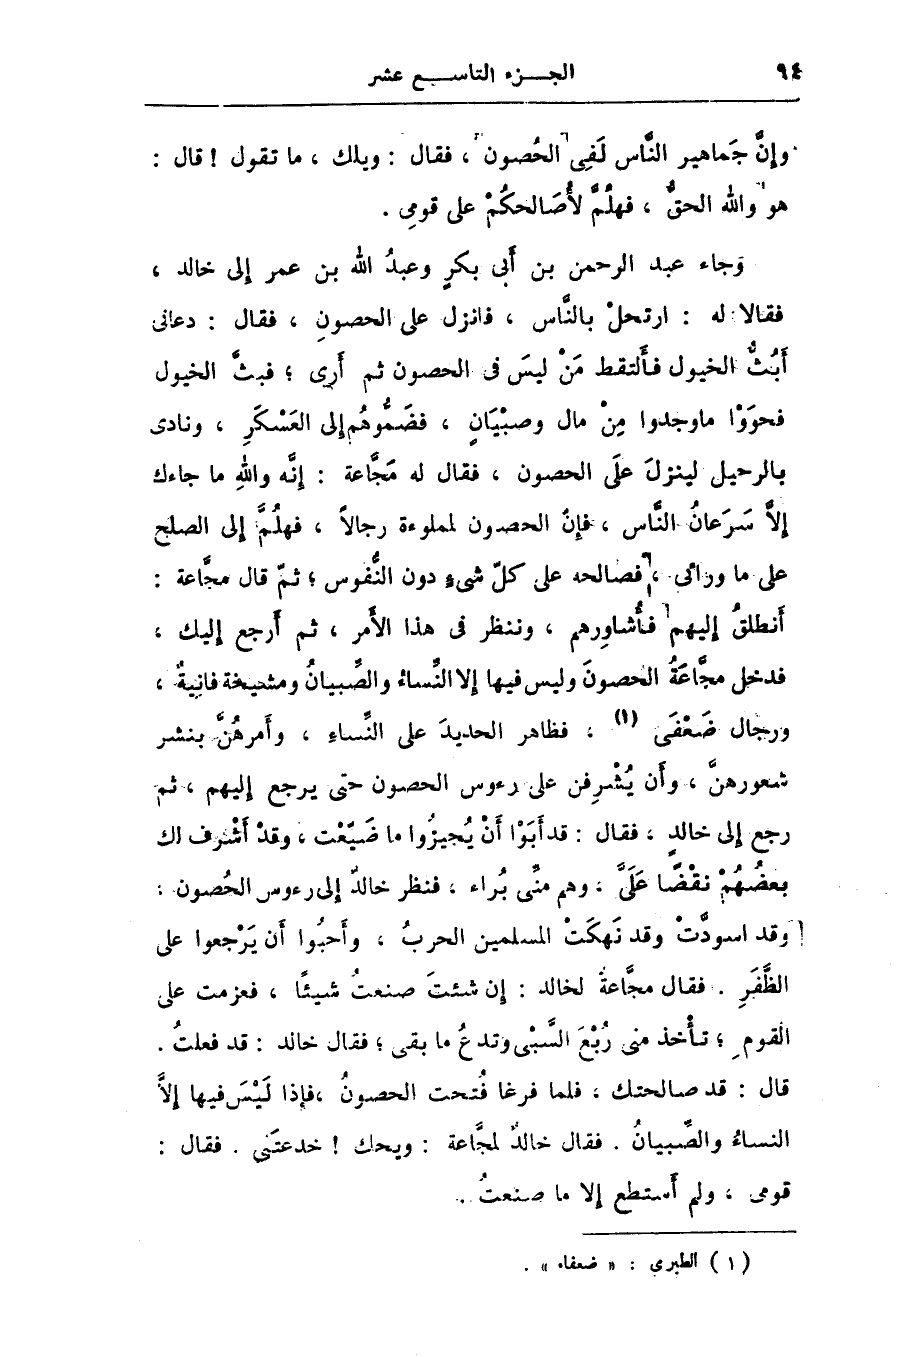 ٩٤
الجـــزء التاســـع عشر
وإنَّ جَماهير النَّاس لَفِى الحُصون ، فقال : ويلك ، ما تقول ! قال :
هو والله الحقُّ ، فهلُمَّ لأُصَالحكُمْ على قومِى .
وَجاء عبد الرحمن بن أَبى بكرٍ وعبدُ الله بن عمر إلى خالد ،
فقالا له : ارتحلْ بالنَّاس ، فانزل على الحصونِ ، فقال : دعانى
أَبُثُّ الخيول فأَلتقط مَنْ ليسَ فى الحصون ثم أَرى ؛ فبثَّ الخيول
فحوَوْا ماوجدوا مِنْ مال وصبْيَانٍ ، فضَمُّوهُم إلى العَسْكَرِ ، ونادى
بالرحيل لينزلَ علَى الحصون ، فقال له مَجَّاعة : إنَّه واللهِ ما جاءك
إلاَّ سَرَعانُ النَّاس ، فإنَّ الحصون لمملوءة رجالاً ، فهلُمَّ إلى الصلح
على ما ورائى ، فصالحه على كلّ شىءٍ دون النُّفوس ؛ ثمّ قال مجَّاعة :
أنطلقُ إليهم فأُشاوِرهم ، وننظر فى هذا الأَمر ، ثم أَرجع إليك ،
فدخل مجَّاعَةُ الحصونَ وليس فيها إلا النِّساءُ والصِّبيانُ ومشيخة فانيةٌ ،
ورجال ضَعْفَى (١) ، فظاهر الحديدَ على النِّساءِ ، وأَمرهُنَّ بنشر
شعورهنَّ ، وأَن يُشْرِفن على رءوس الحصون حتى يرجع إليهم ، ثم
رجع إلى خالدٍ ، فقال : قد أَبَوْا أَنْ يُجيزُوا ما صَنَعْت ، وقدْ أَشْرف لك
بعضُهُمْ نقْضًا عَلَىَّ ، وهم منِّى بُراء ، فنظر خالدٌ إلى رءوس الحُصون ،
وقد اسودَّتْ وقد نَهكَتْ المسلمين الحربُ ، وأَحبُوا أَن يَرْجعوا على
الظَّفَرِ . فقال مجَّاعةُ لخالد : إن شئتَ صنعتُ شيئًا ، فعزمت على
القومِ ؛ تأْخذ منى رُبْعَ السَّبْى وتدعُ ما بقى ؛ فقال خالد : قد فعلتُ .
قال : قد صالحتك ، فلما فرغا فُتحت الحصونُ ، فإذا لَيْسَ فيها إلاَّ
النساءُ والصِّبيانُ . فقال خالدٌ لمجَّاعة : ويحك ! خدعتَنى . فقال :
قومى ، ولم أَستطع إلا ما صنعتُ .
(١) الطبرى : « ضعفاء » .